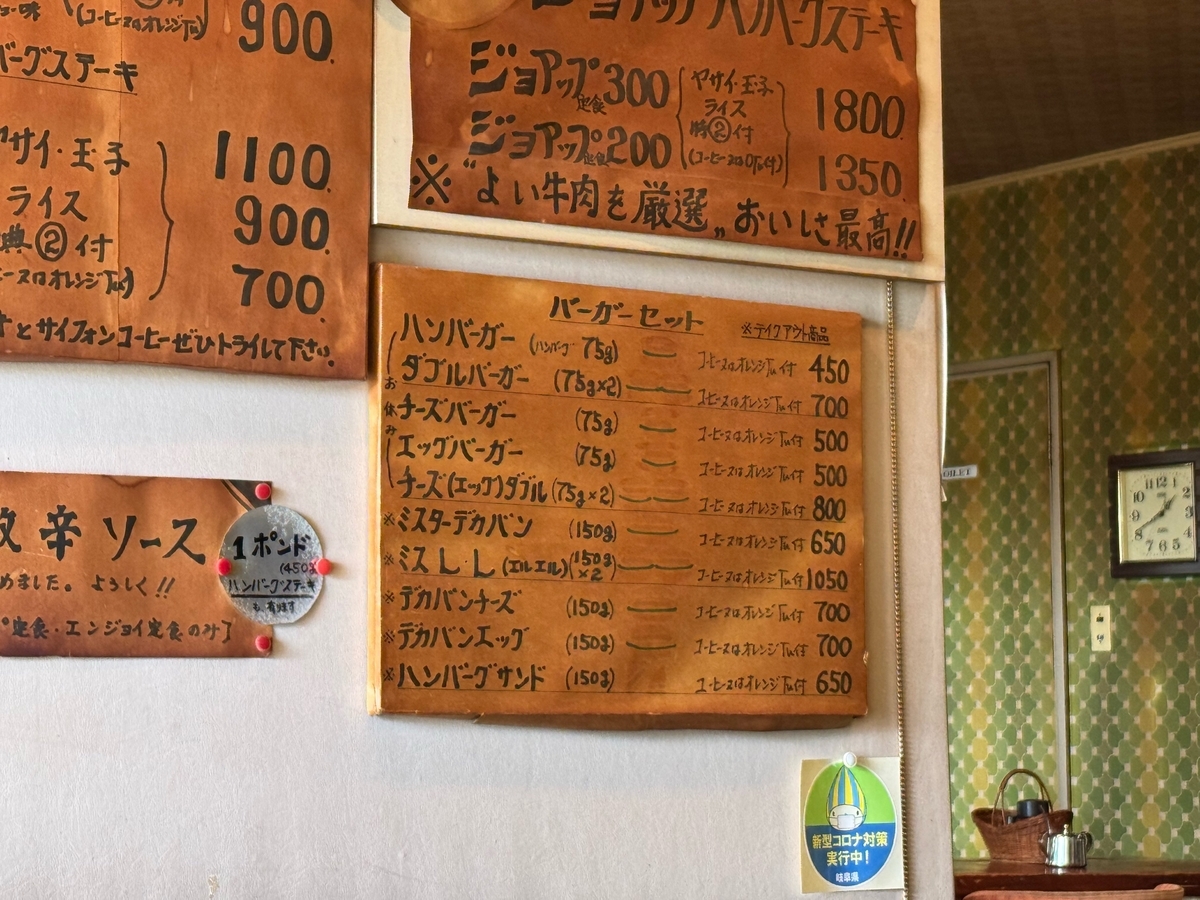 (コーヒー又はオレンジ付) 900
バーグステーキ
ヤサイ・玉子 1100.
ライス 900.
典②付 700.
(コーヒー又はオレンジTu付)
とサイフォンコーヒーぜひトライして下さい。
ジョアップハンバーグステーキ
ジョアップ定食300 ヤサイ・玉子 1800.
ライス
ジョアップ定食200 ②付 1350.
(コーヒー又はOTu付)
※“よい牛肉を厳選„おいしさ最高!!
バーガーセット ※テイクアウト商品
ハンバーガー (ハンバーグ 75g) コーヒー又はオレンジTu付 450
ダブルバーガー (75g×2) コーヒー又はオレンジTu付 700
チーズバーガー (75g) コーヒー又はオレンジTu付 500
エッグバーガー (75g) コーヒー又はオレンジTu付 500
チーズ(エッグ)ダブル (75g×2) コーヒー又はオレンジTu付 800
お休み
※ミスターデカバン (150g) コーヒー又はオレンジTu付 650
※ミスLL(エルエル) (150g×2) コーヒー又はオレンジTu付 1050
※デカバンチーズ (150g) コーヒー又はオレンジTu付 700
※デカバンエッグ (150g) コーヒー又はオレンジTu付 700
※ハンバーグサンド (150g) コーヒー又はオレンジTu付 650
辛ソース
めました。よろしく!!
定食・エンジョイ定食のみ
1ポンド
(450g)
ハンバーグステーキ
も有ます
新型コロナ対策
実行中!
岐阜県
TOILET
12
11 1
10 2
9 3
8 4
7 6 5